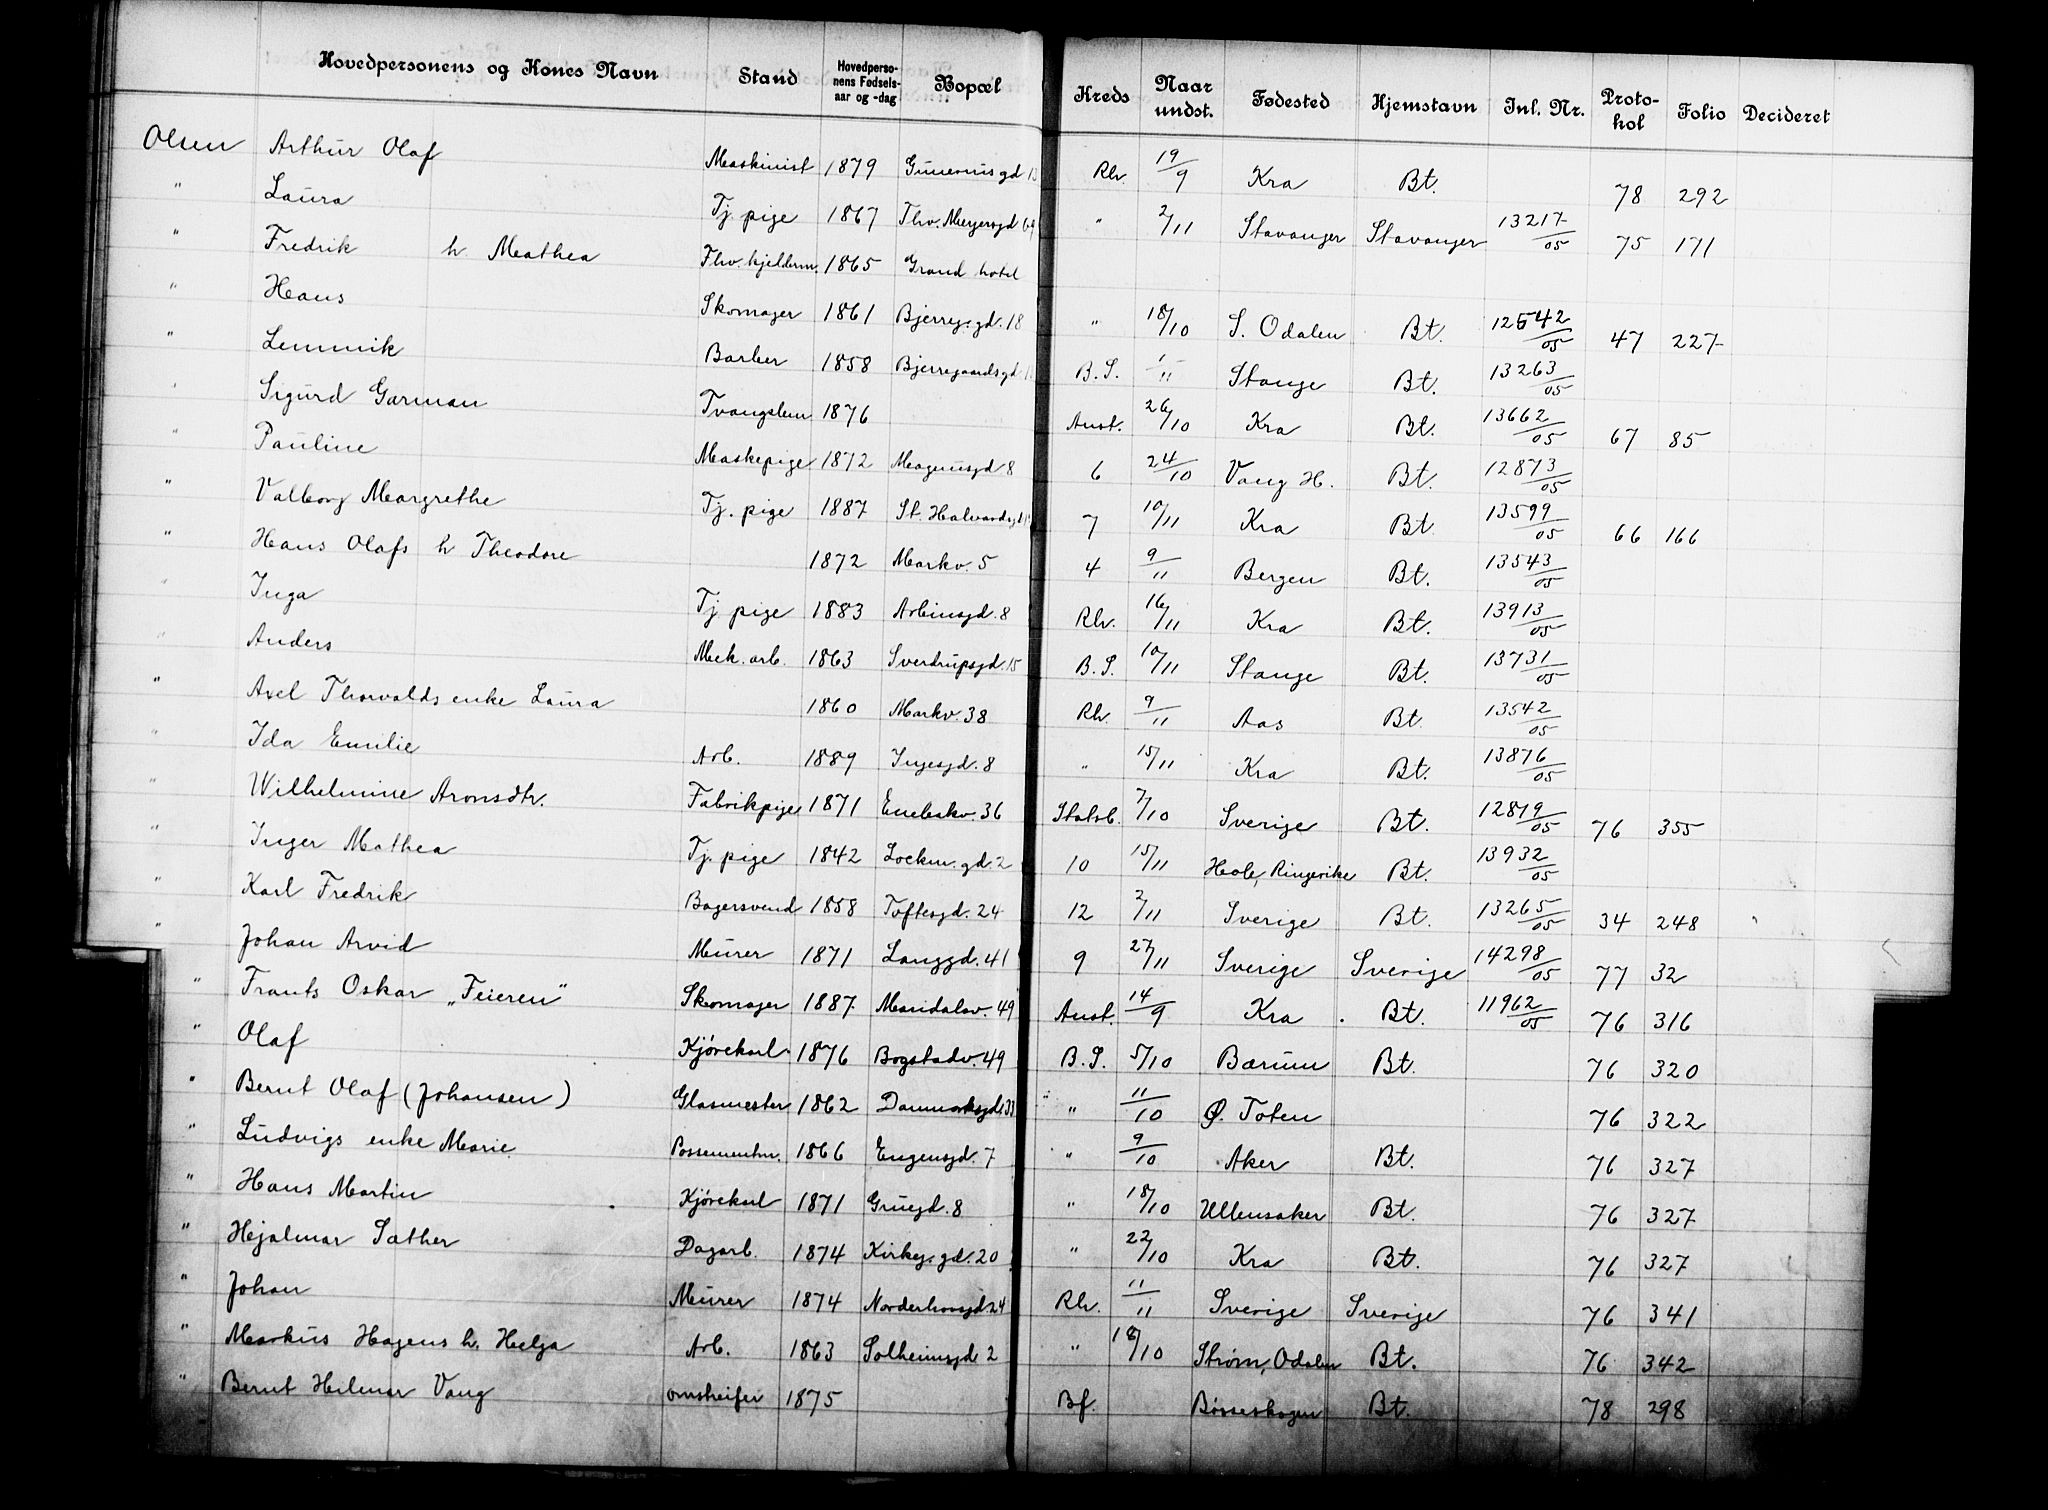 Hovedpersonens og Kones Navn Stand Hovedpersonens Fødselsaar og -dag Bopæl Kreds Naar undst. Fødested Hjemstavn Inl. Nr. Protokol Folio Decideret
Olsen Arthur Olaf Maskinist 1879 Gunerius gd Rh. 19/9 Kra Bt. 78 292
" Laura Tj. pige 1867 Thv. Meyersgd 69 " 2/11 Stavanger Stavanger 13217/05 75 171
" Fredrik h. Mathea Fhv. kjelderm. 1865 Grand hotel
" Hans Skomager 1861 Bjerreg. gd. 18 " 18/10 S. Odalen Bt. 12542/05 47 227
" Lemmik Barber 1858 Bjerregaardsgd B.S. 1/11 Stange Bt. 13263/05
" Sigurd Garman Tvangslem 1876 Anst. 26/10 Kra Bt. 13662/05 67 85
" Pauline Maskepige 1872 Magnusgd 8 6 24/10 Vang H. Bt. 12873/05
" Valborg Margrethe Tj. pige 1887 St. Halvardsgd 7 10/11 Kra Bt. 13599/05 66 166
" Hans Olafs h Theodore 1872 Markv. 5 4 9/11 Bergen Bt. 13543/05
" Inga Tj. pige 1883 Arbinsgd. 8 Rh. 16/11 Kra Bt. 13913/05
" Anders Mek. arb. 1863 Sverdrupsgd. 15 B.S. 10/11 Stange Bt. 13731/05
" Axel Thorvalds enke Laura 1860 Markv. 38 Rh. 9/11 Aas Bt. 13542/05
" Ida Emilie Arb. 1889 Ingesgd. 8 " 15/11 Kra Bt. 13876/05
" Wilhelmine Aronsdtr. Fabrikpige 1871 Enebakv. 36 Statsb. 7/10 Sverige Bt. 12819/05 76 355
" Inger Mathea Tj. pige 1842 Lockm. gd. 2 10 15/11 Hole, Ringerike Bt. 13932/05
" Karl Fredrik Bagersvend 1858 Toftesgd. 24 12 2/11 Sverige Bt. 13265/05 34 248
" Johan Arvid Murer 1871 Langgd. 41 9 27/11 Sverige Sverige 14298/05 77 32
" Frants Oskar „Feieren" Skomager 1887 Maridalsv. 49 Anst. 14/9 Kra Bt. 11962/05 76 316
" Olaf Kjørekarl 1876 Bogstadv. 49 B.S. 5/10 Bærum Bt. 76 320
" Bernt Olaf (Johansen) Glasmester 1862 Danmarksgd. 33 " 11/10 Ø. Toten 76 322
" Ludvigs enke Marie Possementm. 1866 Eugensgd. 7 " 9/10 Aker Bt. 76 327
" Hans Martin Kjørekarl 1871 Gruegd. 8 " 18/10 Ullensaker Bt. 76 327
" Hjalmar Sæther Dagarb. 1874 Kirkeg. gd. 20 " 22/10 Kra Bt. 76 327
" Johan Murer 1874 Norderhovsgd 24 Rh. 11/11 Sverige Sverige 76 341
" Markus Hagens h. Helga Arb. 1863 Solheimsgd 2 " 18/10 Strøm, Odalen Bt. 76 342
" Bernt Hilmar Vang omstreifer 1875 Bf. Bøsseskogen Bt. 78 298